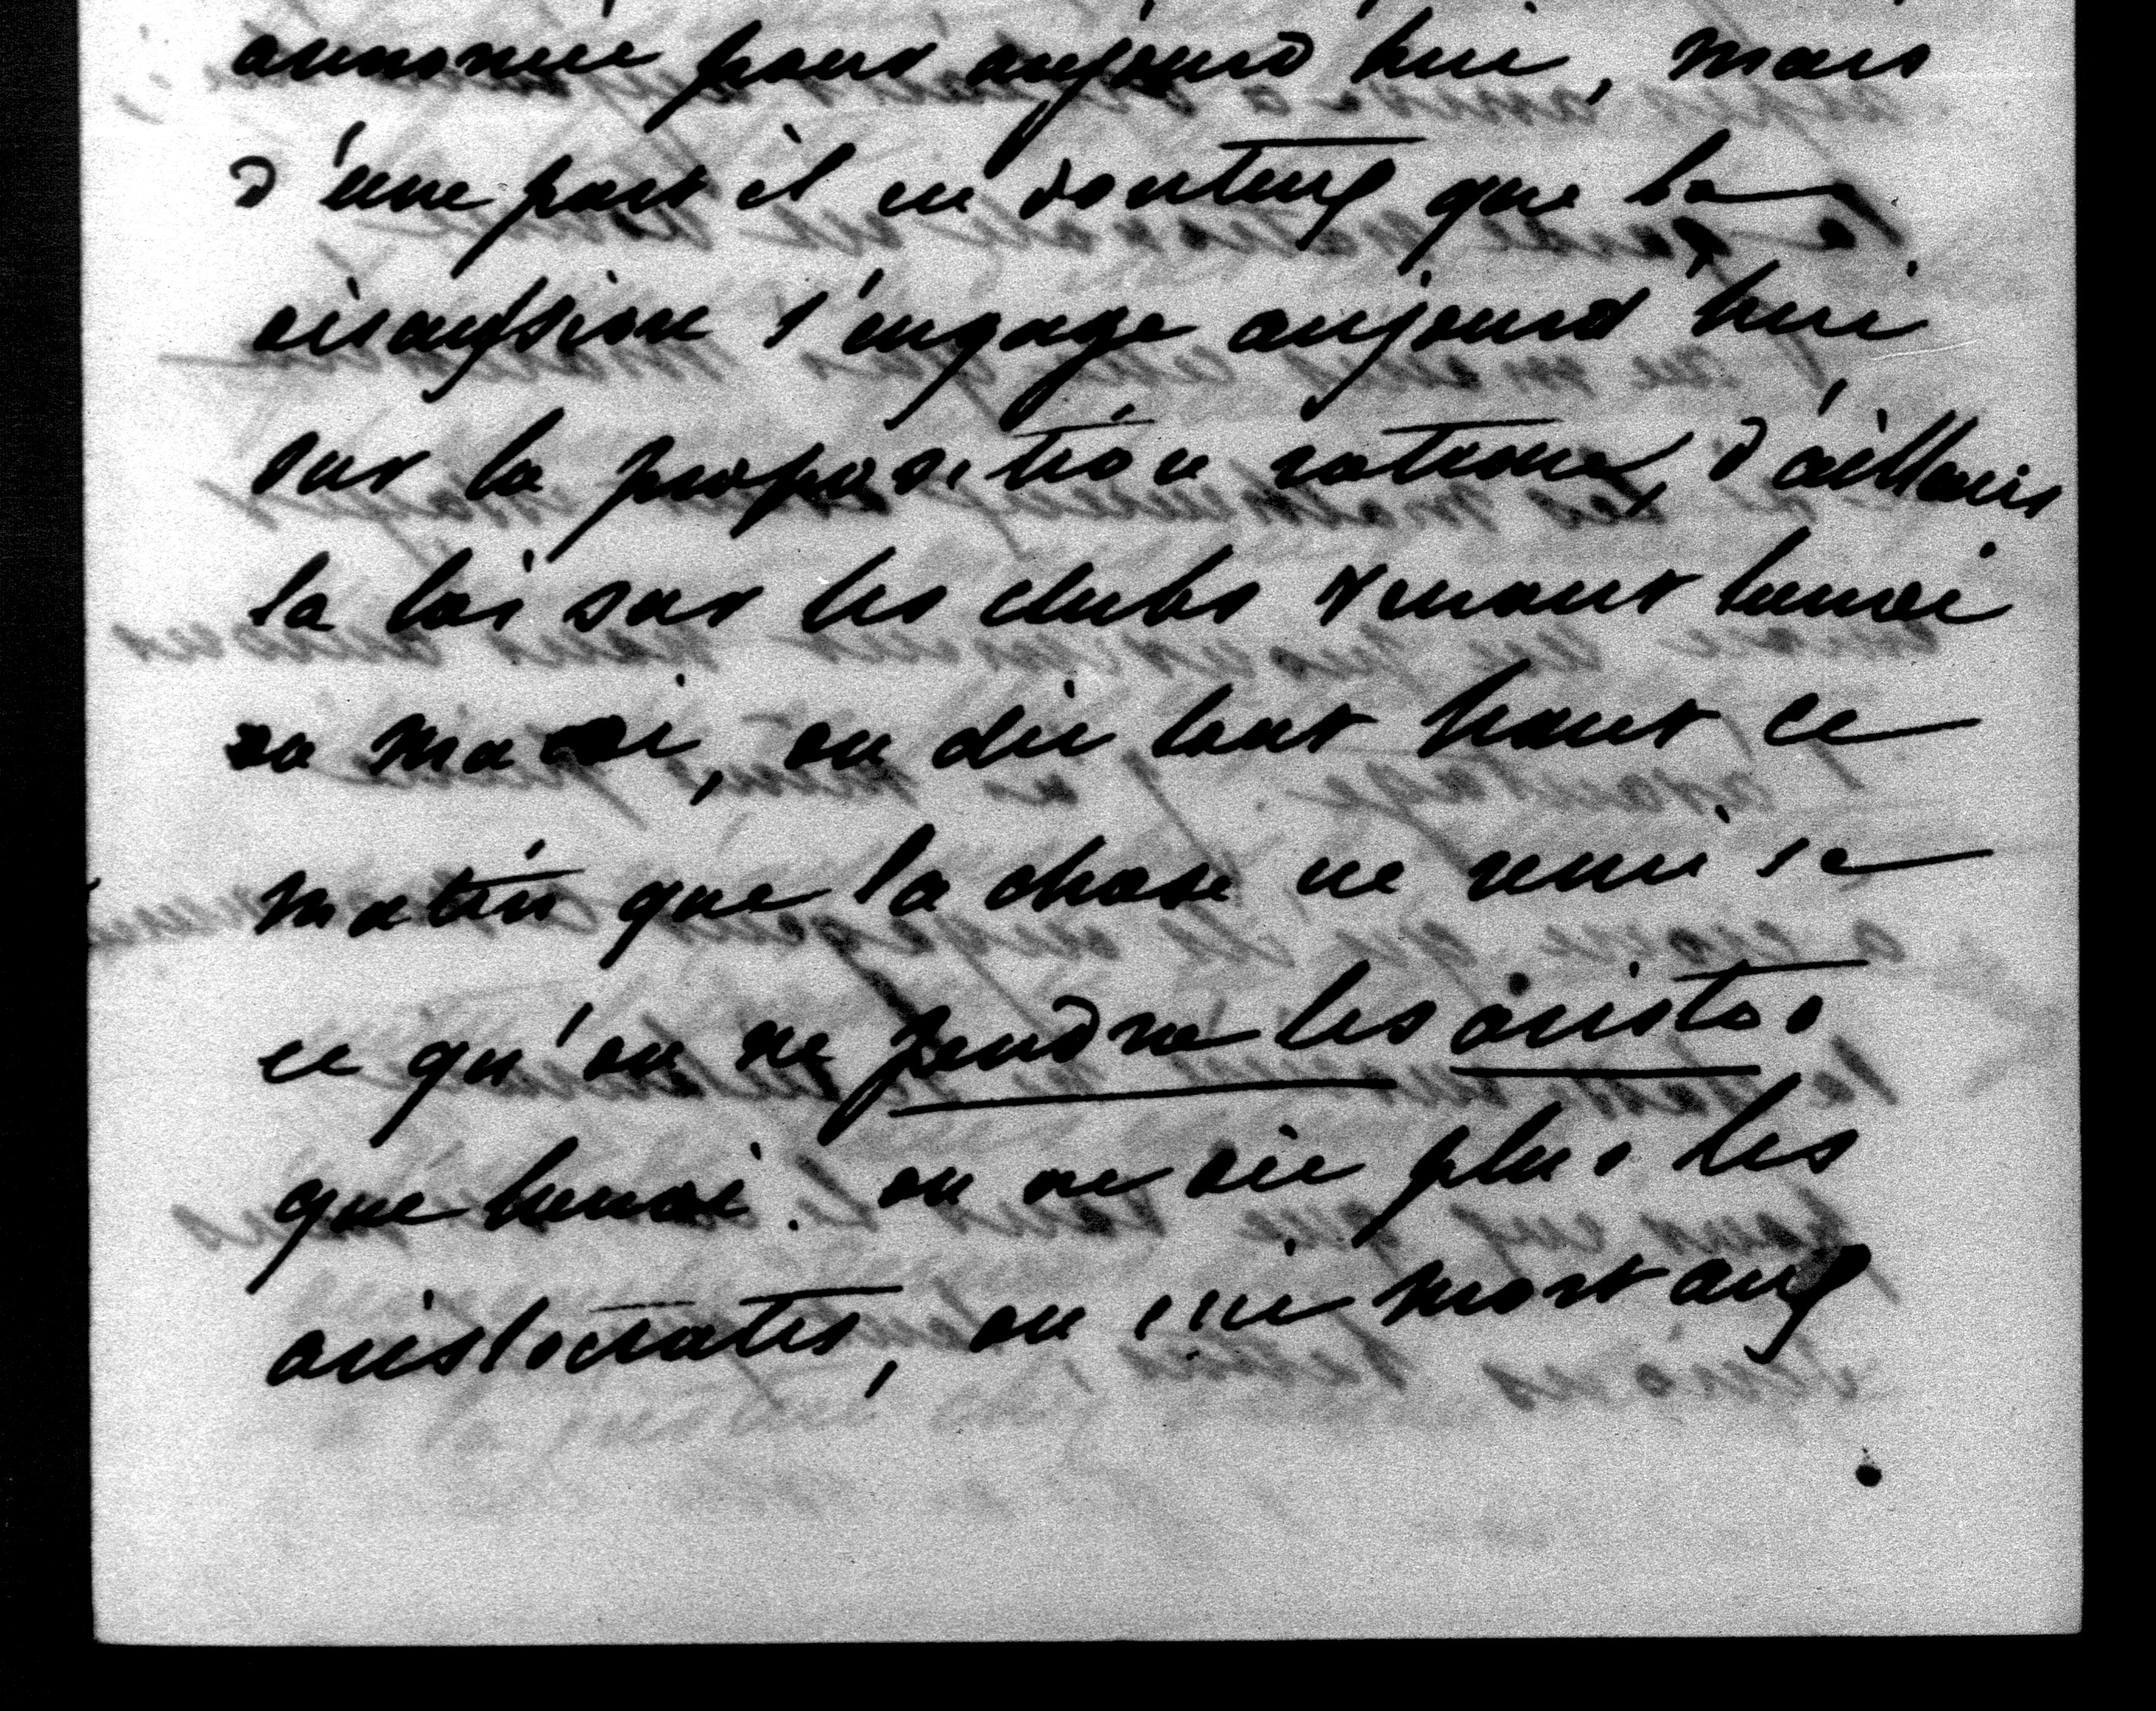 annoncée pour aujourd'hui, mais
d'une part il est douteux que la
discussion s'engage aujourd'hui
sur la proposition rateau, d'ailleurs
la loi sur les clubs venant lundi
ou mardi, on dit tout haut ce
matin que la chose ne
ce qu'on ne pendra les aristos
que lundi. on ne dit plus les
aristocrates, on mort aux